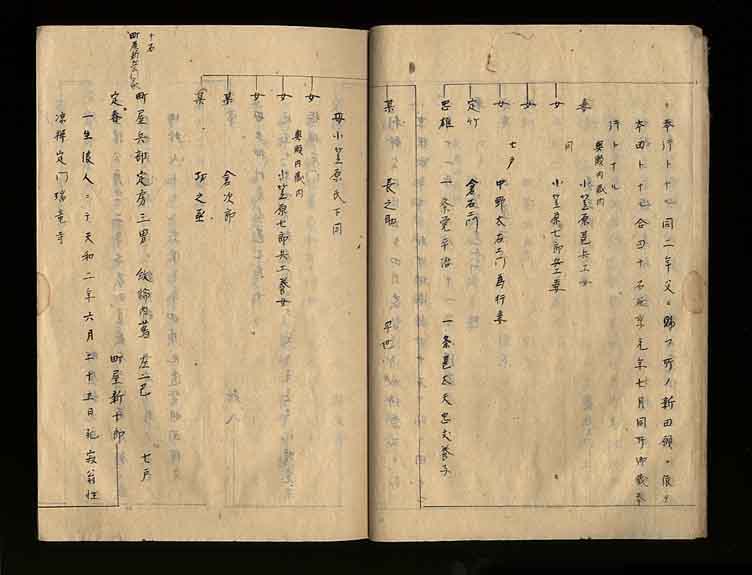 奉行トナル同二年父ニ賜フ所ノ新田領ニ依リ
本田トナシ合四十石延享元年七月同所御蔵奉
行トナル
妻 小笠原甚兵エ女
奥殿内蔵内
女 小笠原七郎兵エ妻
同
女
女 中野太右エ門為行妻
七戸
定六 倉石エ門
忠雄 一条覚平治 一条甚太夫忠丈養子
某 長之助 早世
母小笠原氏下同
女
奥殿内蔵内
女 小笠原七郎兵エ養女
女
某 倉次郎
某 功之丞
十石
町屋新左エ門家
町屋兵部定房三男 紋輪内蔦 左二巴 七戸
定春 町屋新十郎
一生浪人ニテ天和二年六月二十五日死寂翁性
凉禅定門瑞竜寺